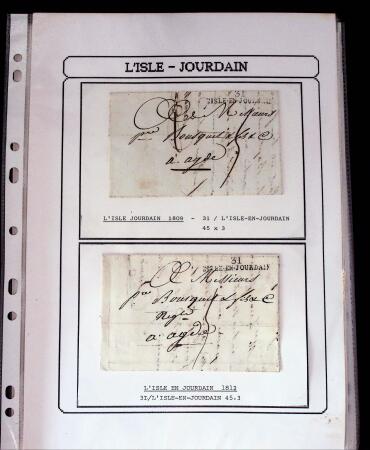 L'ISLE – JOURDAIN
31
L'ISLE-EN-JOURDAIN
A Messieurs
Bousquet
a agde
L'ISLE JOURDAIN 1809 - 31 / L'ISLE-EN-JOURDAIN
45 x 3
31
L'ISLE-EN-JOURDAIN
A Messieurs
Bousquet
a agde
L'ISLE EN JOURDAIN 1812
31/L'ISLE-EN-JOURDAIN 45.3